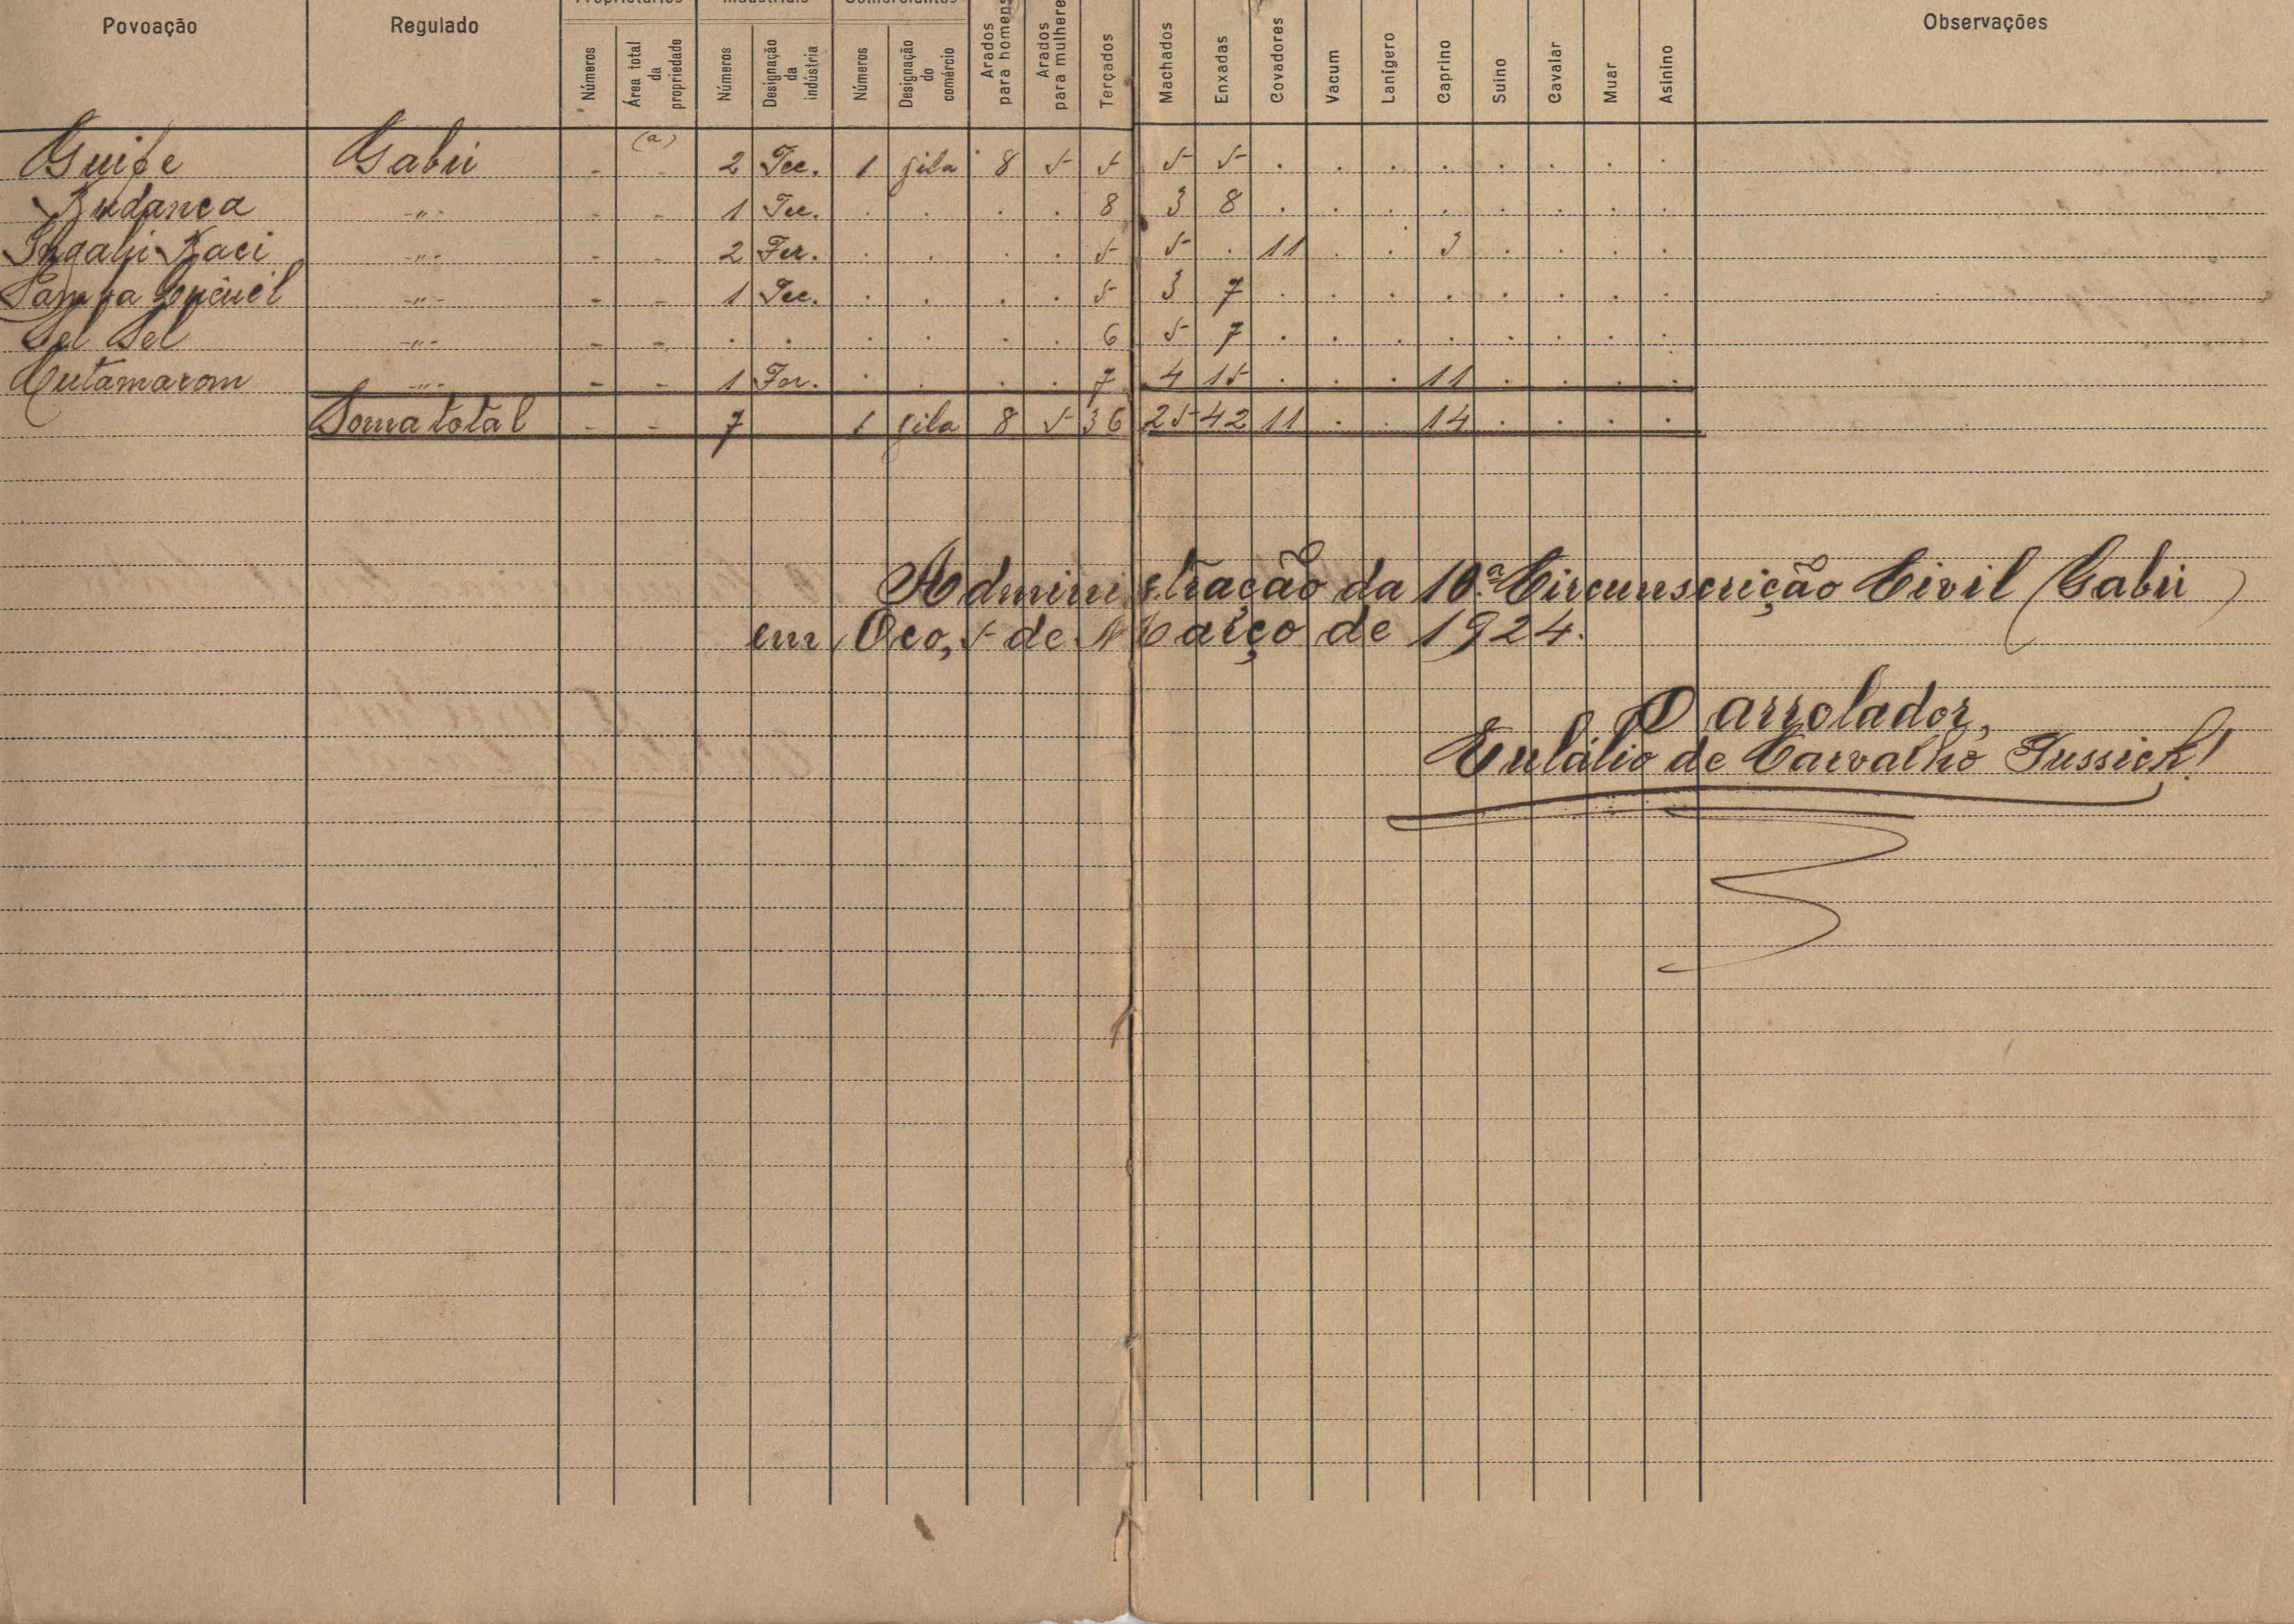 Povoação Regulado Números Área total da propriedade Números Designação da indústria Números Designação do comércio Arados para homens Arados para mulheres Terçados Machados Enxadas Covadores Vacum Lanígero Caprino Suino Cavalar Muar Asinino Observações
(a)
Guife Gabú - - 2 Tec. 1 gila 8 5 5 5 5 . . . . . . . .
Kudanca -"- - - 1 Tec. . . . . 8 3 8 . . . . . . . .
Ingali Kaci -"- - - 2 Fer. . . . . 5 5 . 11 . . 3 . . . .
-"- - - 1 Tec. . . . . 5 3 7 . . . . . . . .
Sel Sel -"- - - . . . . . . 6 5 7 . . . . . . . .
Cutamarom -"- - - 1 Fer. . . . . 7 4 15 . . . 11 . . . .
Soma total - - 7 1 gila 8 5 36 25 42 11 . . 14 . . . .
Administração da 10.ª Circunscrição Civil (Gabú)
em Oco, 5 de Março de 1924.
O arrolador,
Eulálio de Carvalho Jussick!